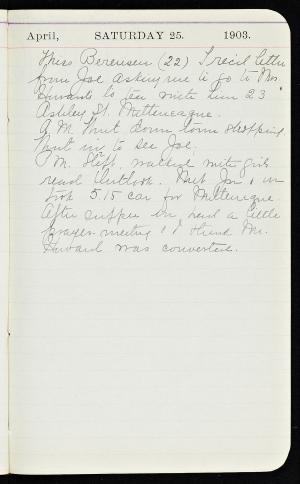 April, SATURDAY 25. 1903.
Miss Berensen (22) I rec'd letter
from Joe asking me to go to Mrs.
Howards to tea with him 23
Ashley St. Mittineague.
A.M. I went down town shopping
went in to see Joe.
P.M. slept, walked with girls
read Outlook. Met Joe
took 5.15 car for Mittineague.
After supper we had a little
prayer-meeting & I think Mr.
Howard was converted.